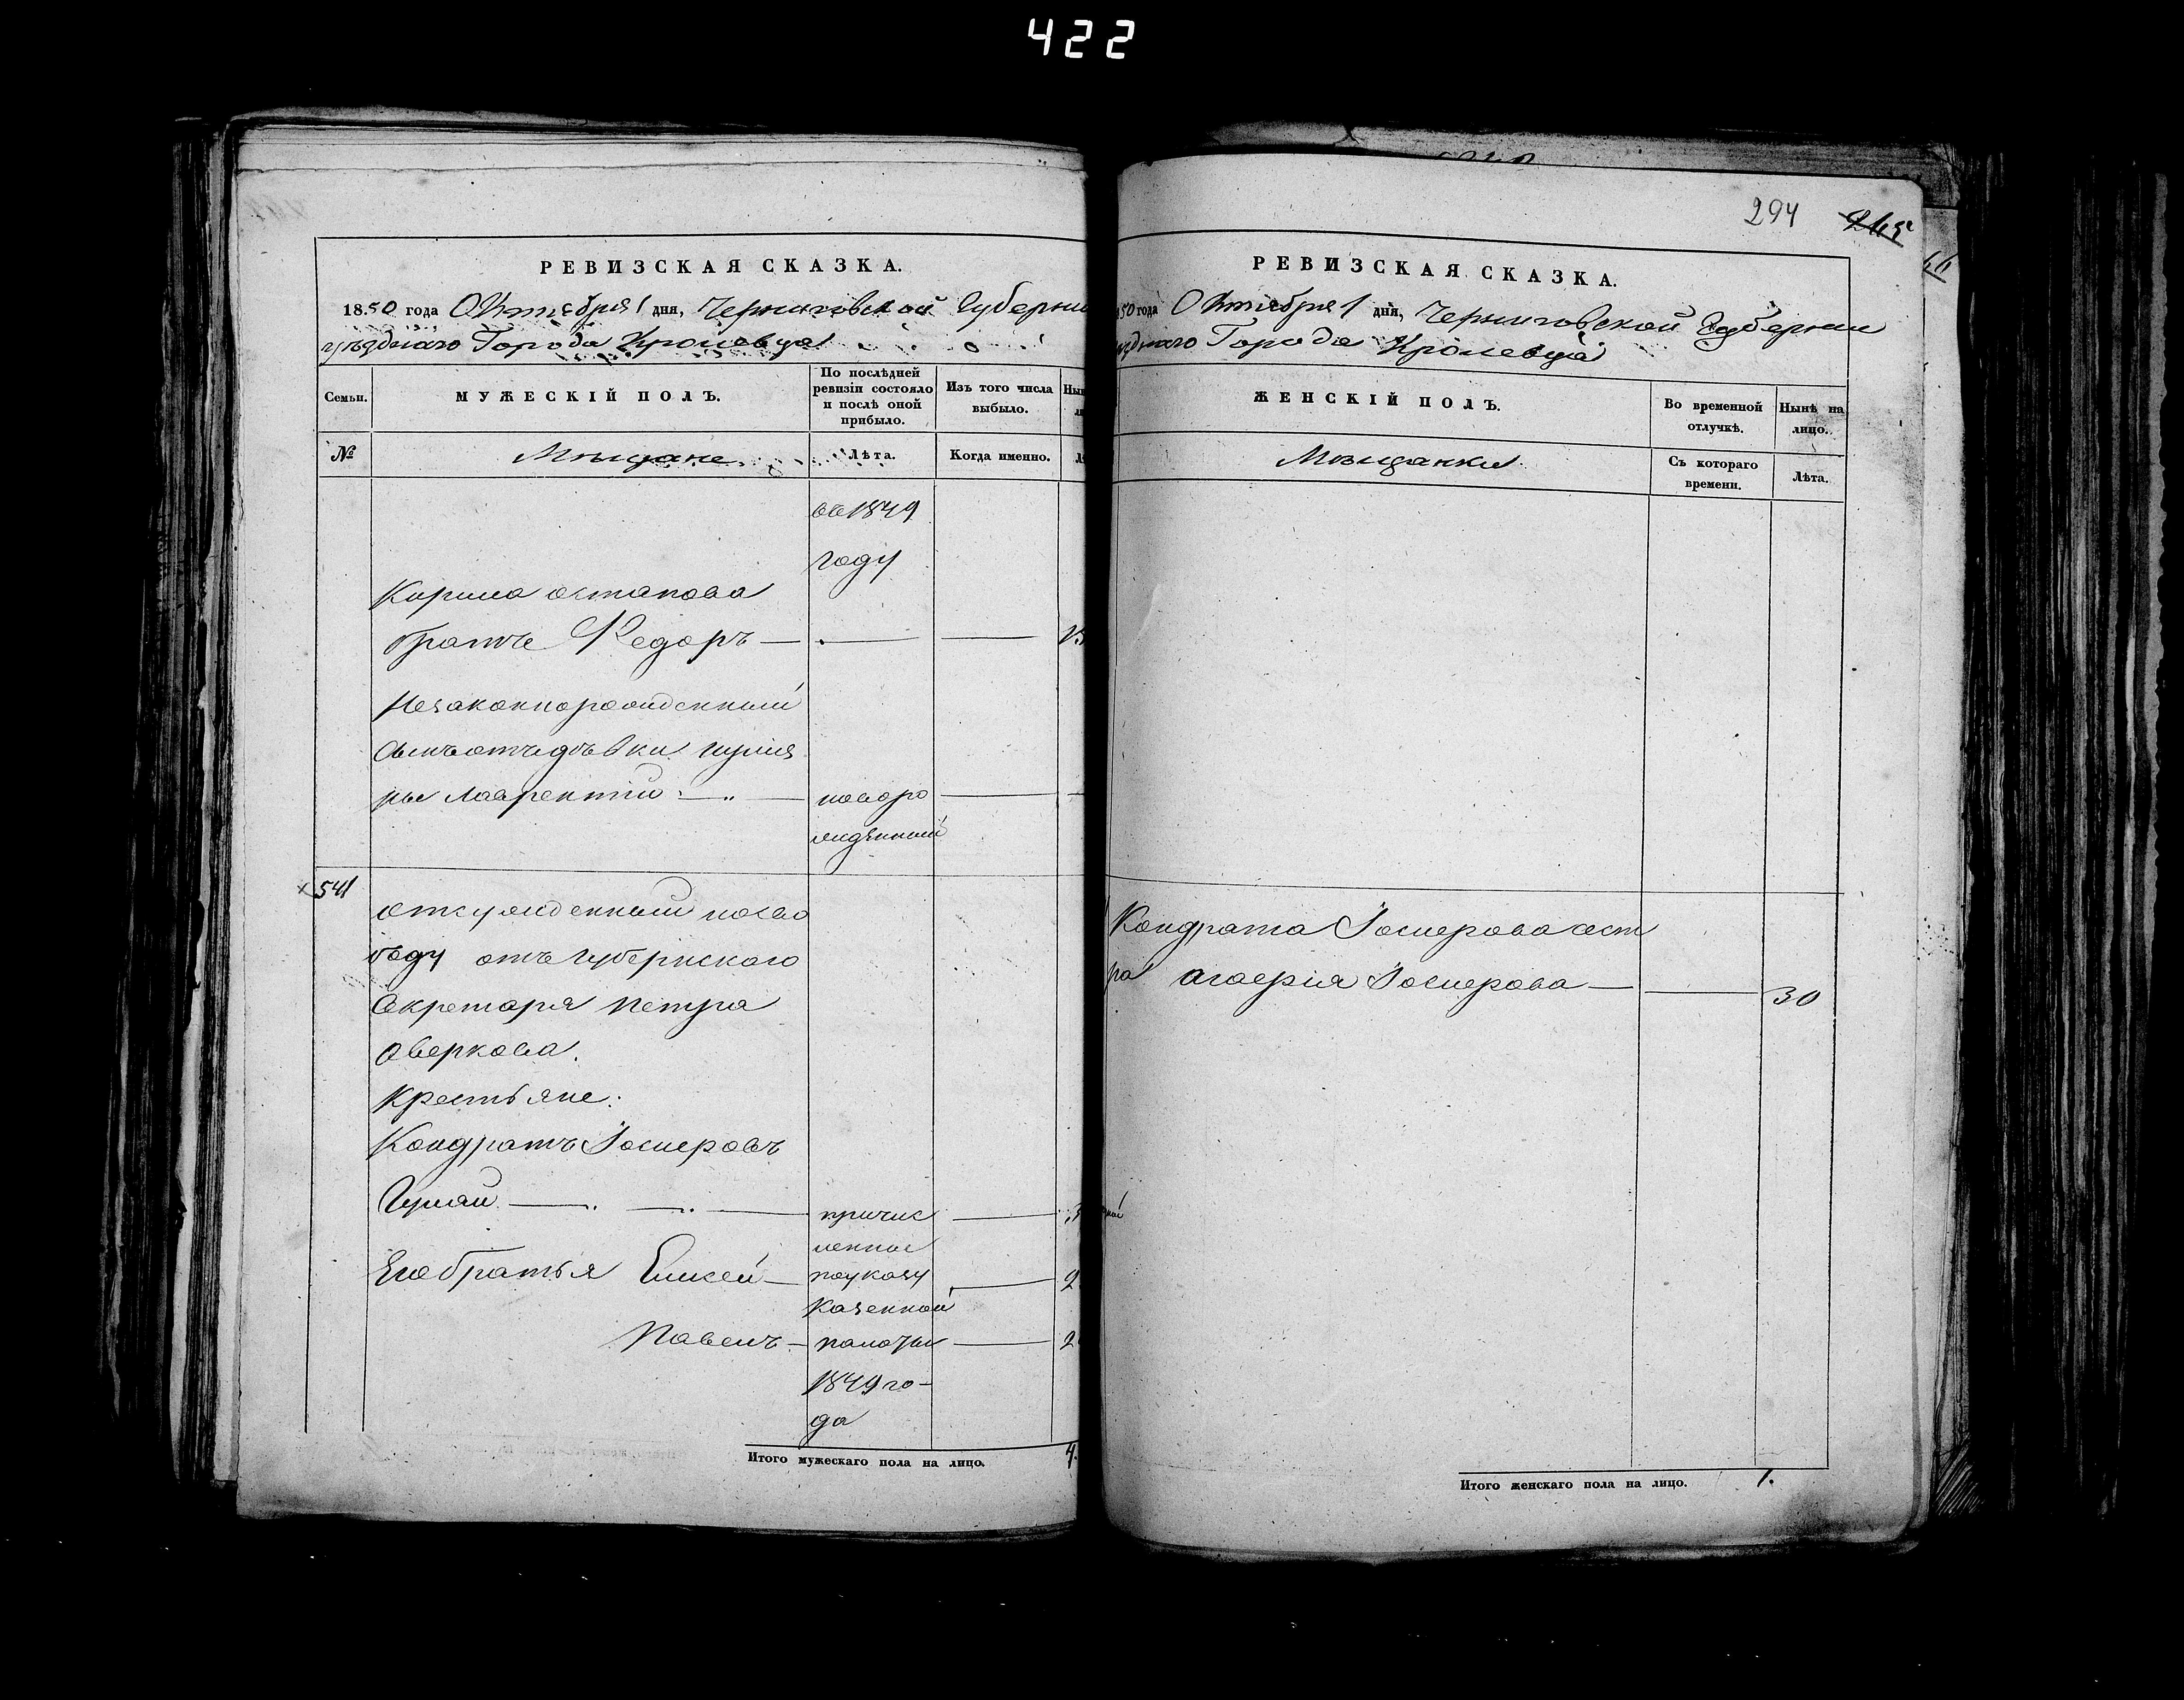 422
РЕВИЗСКАЯ СКАЗКА.
1850 года Октября 1 дня, Черниговской Губерни
уѣзднаго Города Кролевца
Семьи.
МУЖЕСКІЙ ПОЛЪ.
По послѣдней
ревизіи состояло
и послѣ оной
прибыло.
Изъ того числа
выбыло.
Ны
№
Мѣщане
Лѣта.
Когда именно.
въ 1849
году
Кирила остапова
братъ Федоръ —
Незаконнорожденный
сынъ отъ дѣвки
Лаврентій — новоро
жденный
541
отсужденныи насво
боду отъ Губернскаго
Секретаря Петра
Оверкова.
Крестьяне:
Кондратъ Іосиповъ
— причис
ленные
Его братья Елисей — поуказу
Казенной
Павелъ — палаты
1849 го-
да
Итого мужескаго пола на лицо. 4.
294
РЕВИЗСКАЯ СКАЗКА.
50 года Октября 1 дня, Черниговской Губернии
зднаго Города Кролевца
ЖЕНСКІЙ ПОЛЪ.
Во временной
отлучкѣ.
Нынѣ на
лицо.
Мѣщанки
Съ котораго
времени.
Лѣта.
Кондрата Іосипова сест
ра Агафія Іосипова — 30
Итого женскаго пола на лицо. 1.